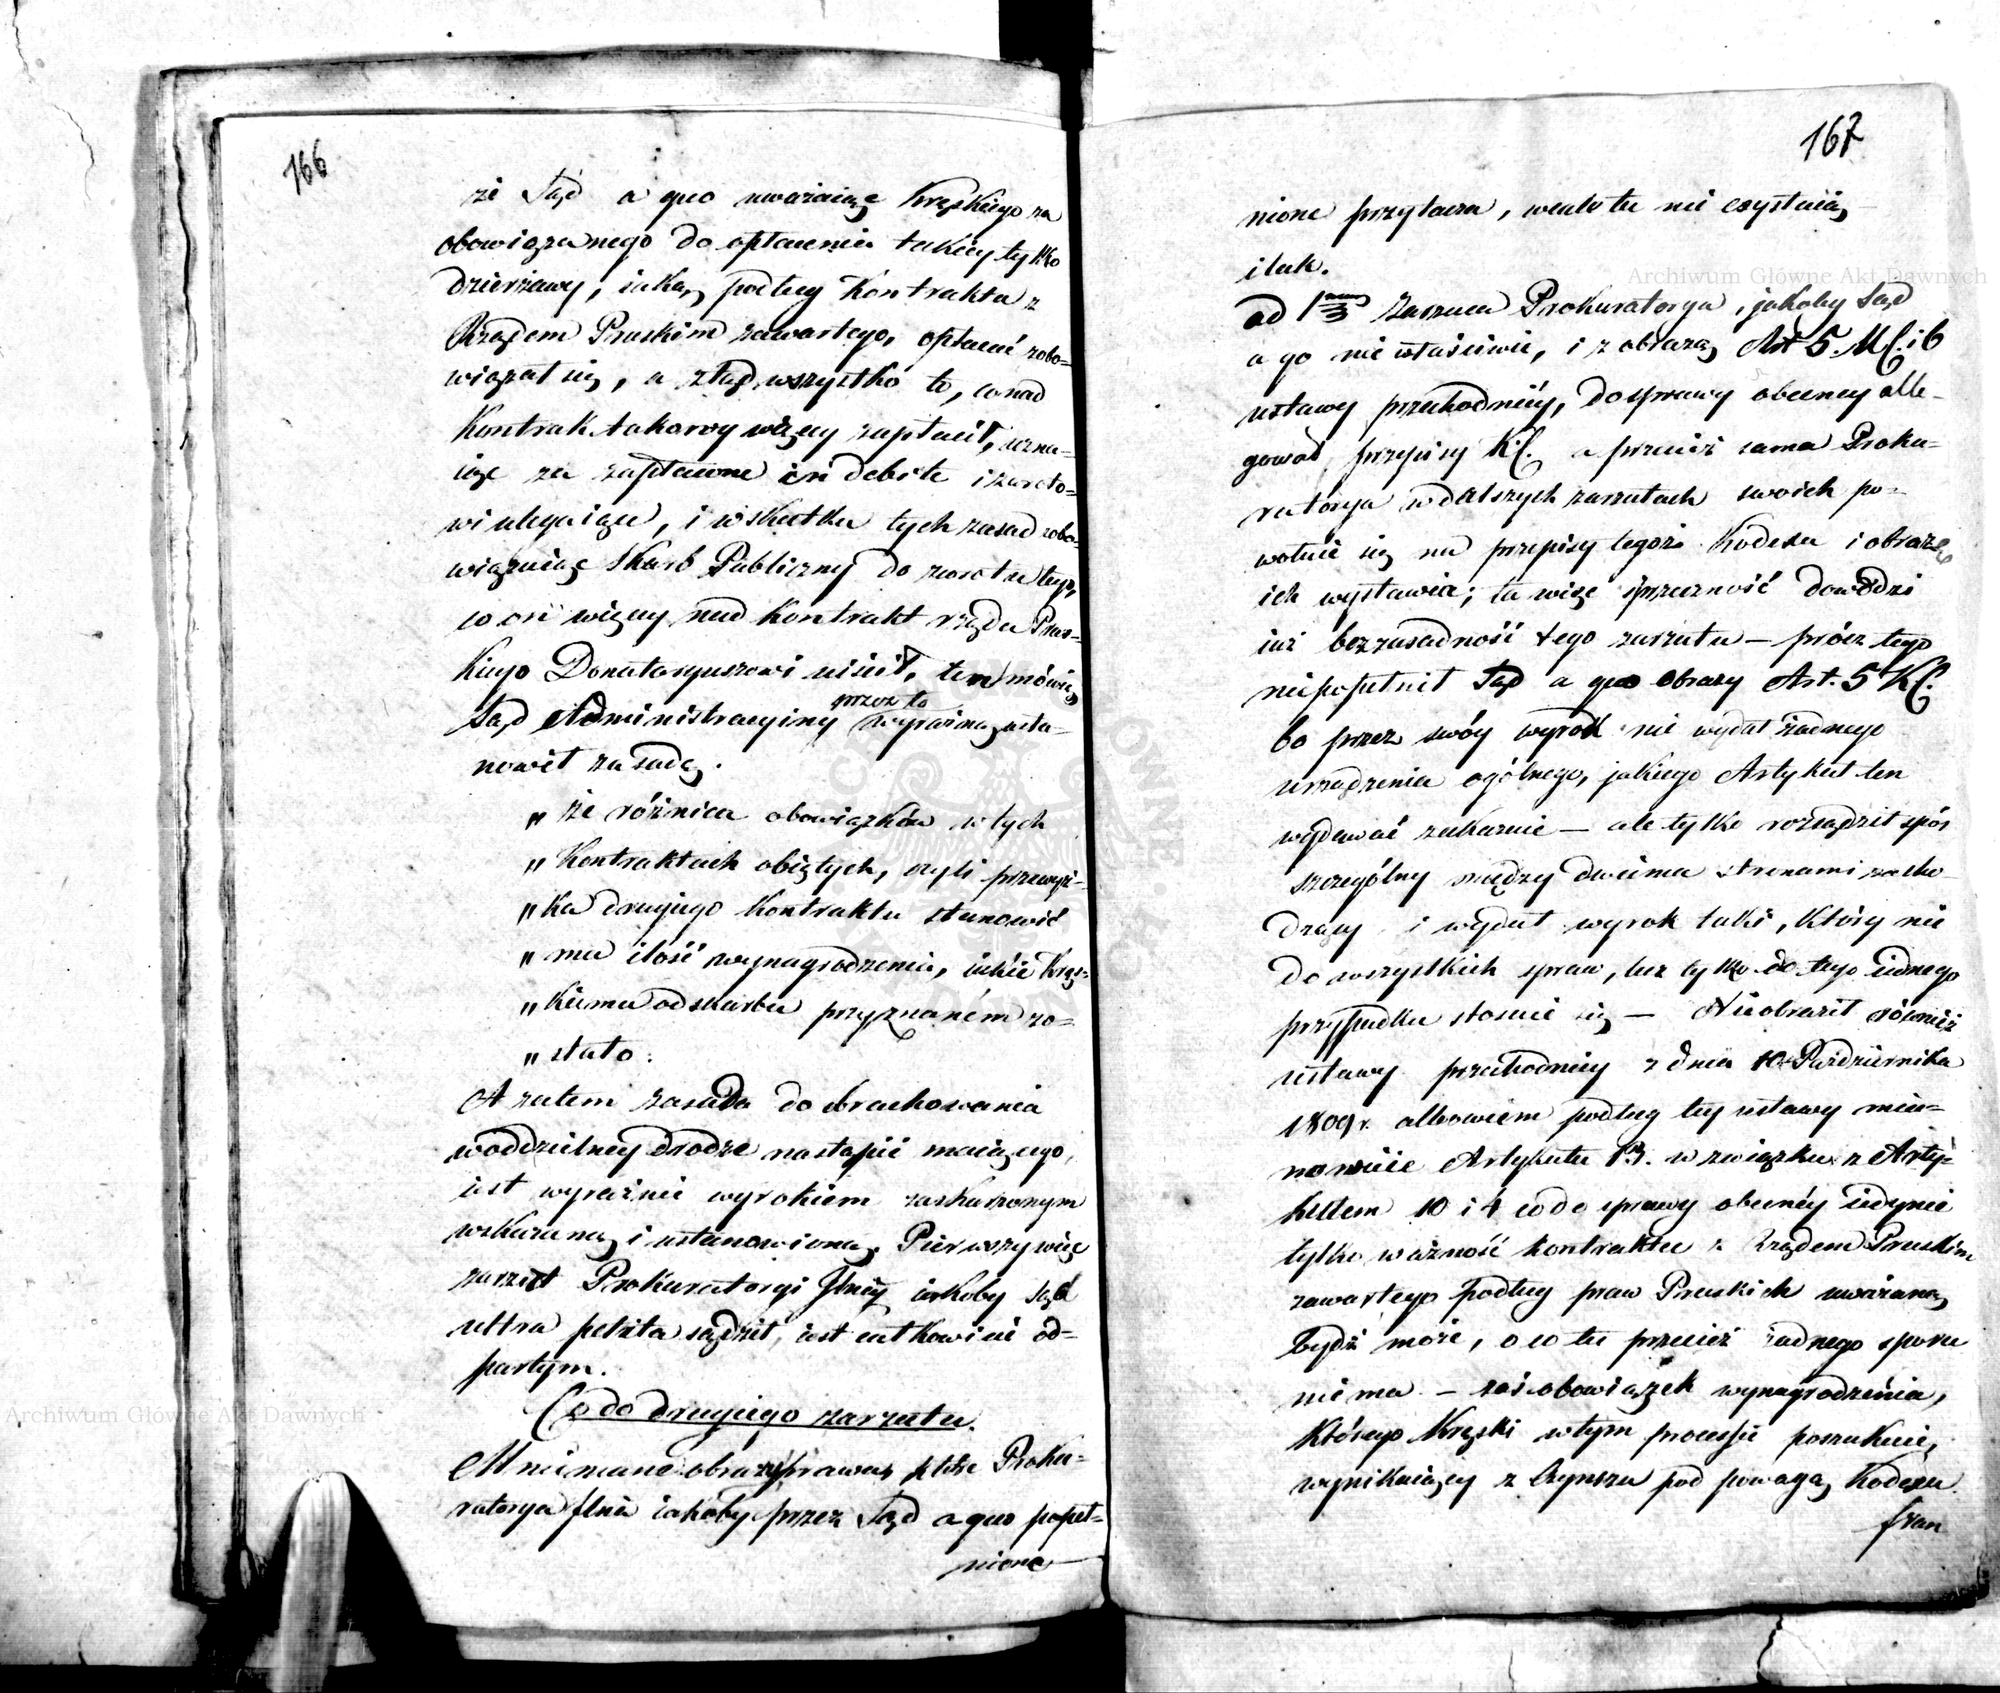 166
że Sąd a quo uważaiąc Kręskiego za
obowiązanego do opłacenia takiey tylko
dzierżawy, iaką podług Kontraktu z
Rządem Pruskim zawartego, opłacać zobo=
wiązał się, a ztąd wszystko to, co nad
Kontrakt takowy więcey zapłacił, uzna=
iąc za zapłacone in debite i zwroto=
wi ulegaiące, i w skutku tych zasad zobo=
wiązuiąc Skarb Publiczny do zwrotu tego,
co on więcy nad Kontrakt rządu Prus=
kiego Donataryuszowi uiścił, tem mówię
Sąd Administracyiny przez to wyraźną usta=
nowił zasadę.
„ że różnica obowiązków w tych
„ Kontraktach obiętych, czyli przewyż=
„ ka drugiego Kontraktu stanowić
„ ma ilość wynagrodzenia, iakie Kręs=
„ kiemu od skarbu przyznaném zo=
„ stało.
A zatem zasada do obrachowania
w oddzielney drodze nastąpić maiącego,
iest wyraźnie wyrokiem zaskarżonym
wskazaną i ustanowioną. Pierwszy więc
zarzut Prokuratoryi Jlney iakoby Sąd
ultra petita sądził, iest całkowicie od=
partym.
Co do drugiego zarzutu.
Mniemane obrazy prawa, które Proku=
ratorya Jlna iakoby przez Sąd a quo popeł=
nione
167
nione przytacza, wcale tu nie exystuią
i tak.
ad 1mum zarzuca Prokuratorya, jakoby Sąd
a quo niewłaściwie, i z obrazą Art 5. K.C. i 6
ustawy przechodniéy, do sprawy obecney alle-
gował przepisy K.C. a przecież sama Proku=
ratorya w dalszych zarzutach swoich po=
wołuie się na przepisy tegoż Kodexu i obrazę
ich wystawia; ta więc sprzeczność dowodzi
iuż bezzasadność tego zarzutu — prócz tego
niepopełnił Sąd a quo obrazy Art. 5 K.C.
bo przez swóy wyrok nie wydał żadnego
urządzenia ogólnego, jakiego Artykuł ten
wydawać zakazuie — ale tylko rozsądził spór
szczególny między dwiema stronami zacho-
dzący i wydał wyrok taki, który nie
do wszystkich spraw, lecz tylko do tego iednego
przypadku stosuie się — Nie obraził również
ustawy przechodniey z dnia 10 Października
1809 r. albowiem podług tey ustawy mia=
nowicie Artykułu 13. w związku z Arty=
kułem 10 i 4 co do sprawy obecnéy iedynie
tylko ważność kontraktu z Rządem Pruskim
zawartego podług praw Pruskich uważaną
bydź może, o co tu przecież żadnego sporu
nie ma — zaś obowiązek wynagrodzenia,
którego Kręski w tym processie poszukuie,
wynikaiący z Czynszu pod powagą Kodexu
fran
Archiwum Główne Akt Dawnych
Archiwum Główne Akt Dawnych